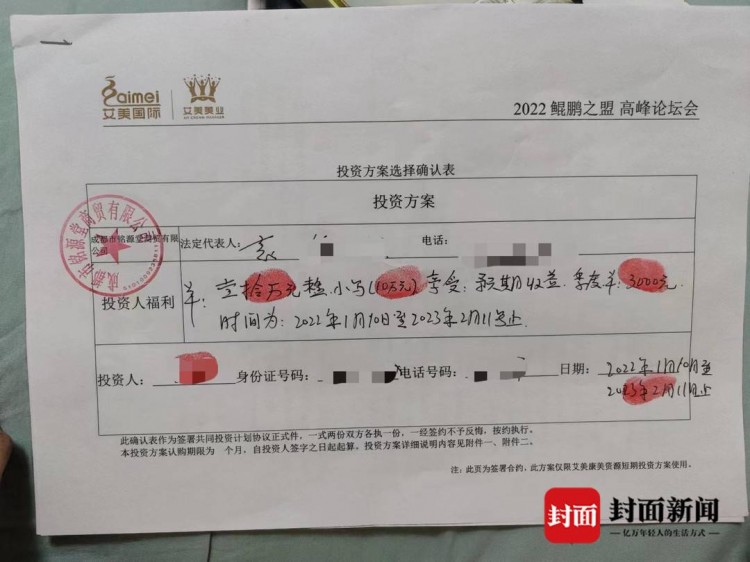 aimei
艾美国际
艾美美业
2022 鲲鹏之盟 高峰论坛会
投资方案选择确认表
投资方案
成都市铭源堂商贸有限公司
成都市铭源堂商贸有限公司
法定代表人：袁
电话：
投资人福利
单：壹拾万元整.小写(10万元)享受：预期收益.季度单：3000元.
时间为：2022年1月10日至2023年2月11号止.
投资人：
身份证号码：
电话号码：
日期：2022年1月10日至
2023年2月11日止
此确认表作为签署共同投资计划协议正式件，一式两份双方各执一份，一经签约不予反悔，按约执行。
本投资方案认购期限为 个月，自投资人签字之日起起算。投资方案详细说明内容见附件一、附件二。
注：此页为签署合约，此方案仅限艾美康美货源短期投资方案使用。
封面
封面新闻
亿万年轻人的生活方式